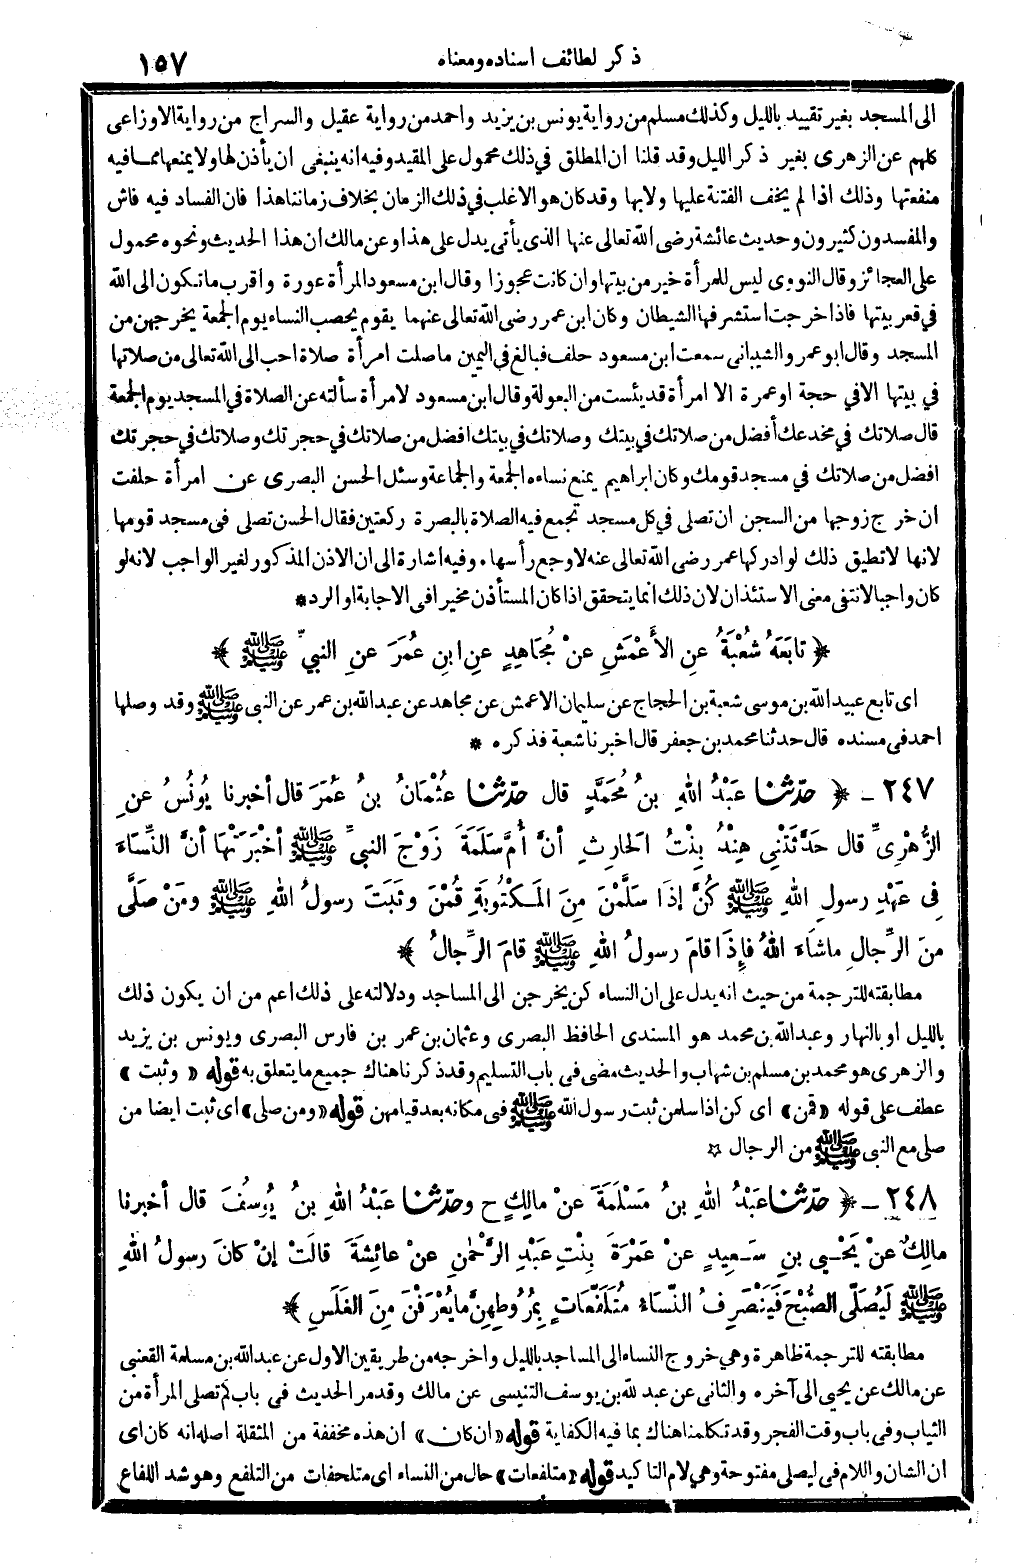 ذكر لطائف اسناده ومعناه ١٥٧
الى المسجد بغير تقييد بالليل وكذلك مسلم من رواية يونس بن يزيد واحمد من رواية عقيل والسراج من رواية الاوزاعى
كلهم عن الزهرى بغير ذكر الليل وقد قلنا ان المطلق في ذلك محمول على المقيد وفيه انه ينبغى ان يأذن لها ولا يمنعها مما فيه
منفعتها وذلك اذا لم يخف الفتنة عليها ولا بها وقد كان هو الاغلب في ذلك الزمان بخلاف زماننا هذا فان الفساد فيه فاش
والمفسدون كثيرون وحديث عائشة رضى الله تعالى عنها الذى يأتى يدل على هذا وعن مالك ان هذا الحديث ونحوه محمول
على العجائز وقال النووى ليس للمرأة خير من بيتها وان كانت عجوزا وقال ابن مسعود المرأة عورة واقرب ما تكون الى الله
في قعر بيتها فاذا خرجت استشرفها الشيطان وكان ابن عمر رضى الله تعالى عنهما يقوم يحصب النساء يوم الجمعة يخرجهن من
المسجد وقال ابو عمرو الشيبانى سمعت ابن مسعود حلف فبالغ في اليمين ما صلت امرأة صلاة احب الى الله تعالى من صلاتها
في بيتها الا في حجة او عمرة الا امرأة قد يئست من البعولة وقال ابن مسعود لامرأة سألته عن الصلاة في المسجد يوم الجمعة
قال صلاتك في مخدعك أفضل من صلاتك في بيتك وصلاتك في بيتك افضل من صلاتك في حجرتك وصلاتك في حجرتك
افضل من صلاتك في مسجد قومك وكان ابراهيم يمنع نساءه الجمعة والجماعة وسئل الحسن البصرى عن امرأة حلفت
ان خرج زوجها من السجن ان تصلى في كل مسجد تجمع فيه الصلاة بالبصرة ركعتين فقال الحسن تصلى فى مسجد قومها
لانها لا تطيق ذلك لو ادركها عمر رضى الله تعالى عنه لاوجع رأسها . وفيه اشارة الى ان الاذن المذكور لغير الواجب لانه لو
كان واجبا لانتفى معنى الاستئذان لان ذلك انما يتحقق اذا كان المستأذن مخيرا فى الاجابة او الرد *
﴿ تابَعَهُ شُعْبَةُ عنِ الأَعْمَشِ عنْ مُجَاهِدٍ عنِ ابنِ عُمَرَ عنِ النبيِّ ﷺ ﴾
اى تابع عبيد الله بن موسى شعبة بن الحجاج عن سليمان الاعمش عن مجاهد عن عبد الله بن عمر عن النبى ﷺ وقد وصلها
احمد فى مسنده قال حدثنا محمد بن جعفر قال اخبرنا شعبة فذكره *
٢٤٧ ـ ﴿ حدّثنا عَبْدُ اللهِ بنُ مُحَمَّدٍ قال حدّثنا عُثْمَانُ بنُ عُمَرَ قال أخبرنا يُونُسُ عنِ
الزُّهْرِىِّ قال حَدَّثَتْنِي هِنْدُ بِنْتُ الحَارِثِ أنَّ أُمَّ سَلَمَةَ زَوْجَ النبيِّ ﷺ أخْبَرَتْهَا أنَّ النِّسَاءَ
فِى عَهْدِ رسولِ اللهِ ﷺ كُنَّ إذَا سَلَّمْنَ مِنَ المَكْتُوبَةِ قُمْنَ وثَبَتَ رسولُ اللهِ ﷺ ومَنْ صَلَّى
مِنَ الرِّجالِ ماشَاءَ اللهُ فإِذَا قامَ رسولُ اللهِ ﷺ قامَ الرِّجالُ ﴾
مطابقته للترجمة من حيث انه يدل على ان النساء كن يخرجن الى المساجد ودلالته على ذلك اعم من ان يكون ذلك
بالليل او بالنهار وعبد الله بن محمد هو المسندى الحافظ البصرى وعثمان بن عمر بن فارس البصرى ويونس بن يزيد
والزهرى هو محمد بن مسلم بن شهاب والحديث مضى فى باب التسليم وقد ذكرنا هناك جميع ما يتعلق به قوله « وثبت »
عطف على قوله « قمن » اى كن اذا سلمن ثبت رسول الله ﷺ فى مكانه بعد قيامهن قوله « ومن صلى » اى ثبت ايضا من
صلى مع النبى ﷺ من الرجال ☆
٢٤٨ ـ ﴿ حدّثنا عَبْدُ اللهِ بنُ مَسْلَمَةَ عنْ مالِكٍ ح وحدّثنا عَبْدُ اللهِ بنُ يُوسُفَ قال أخبرنا
مالِكٌ عنْ يَحْيى بنِ سَعِيدٍ عنْ عَمْرَةَ بِنْتِ عَبْدِ الرَّحْمٰنِ عنْ عائِشَةَ قالَتْ إنْ كانَ رسولُ اللهِ
ﷺ لَيُصَلِّى الصُّبْحَ فَيَنْصَرِفُ النِّسَاءُ مُتَلَفِّعَاتٍ بِمُرُوطِهِنَّ مايُعْرَفْنَ مِنَ الغَلَسِ ﴾
مطابقته للترجمة ظاهرة وهي خروج النساء الى المساجد بالليل واخرجه من طريقين الاول عن عبد الله بن مسلمة القعنبى
عن مالك عن يحيى الى آخره والثانى عن عبد لله بن يوسف التنيسى عن مالك وقد مر الحديث فى باب كم تصلى المرأة من
الثياب وفى باب وقت الفجر وقد تكلمنا هناك بما فيه الكفاية قوله « ان كان » ان هذه مخففة من المثقلة اصله انه كان اى
ان الشان واللام فى ليصلى مفتوحة وهي لام التاكيد قوله « متلفعات » حال من النساء اى متلحفات من التلفع وهو شد اللفاع